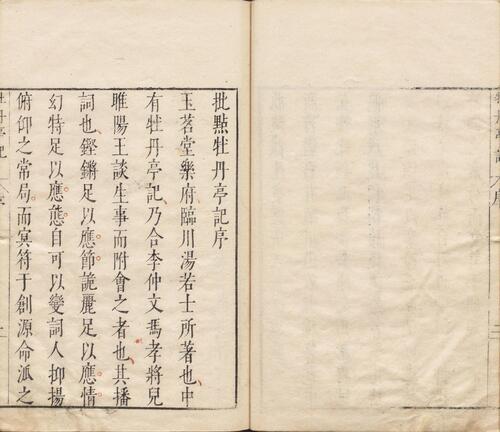 批點牡丹亭記序
玉茗堂樂府臨川湯若士所著也中
有牡丹亭記乃合李仲文馮孝將兒
睢陽王談生事而附會之者也其播
詞也鏗鏘足以應節詭麗足以應情
幻特足以應態自可以變詞人抑揚
俯仰之常局而冥符于創源命派之
牡丹亭記
序